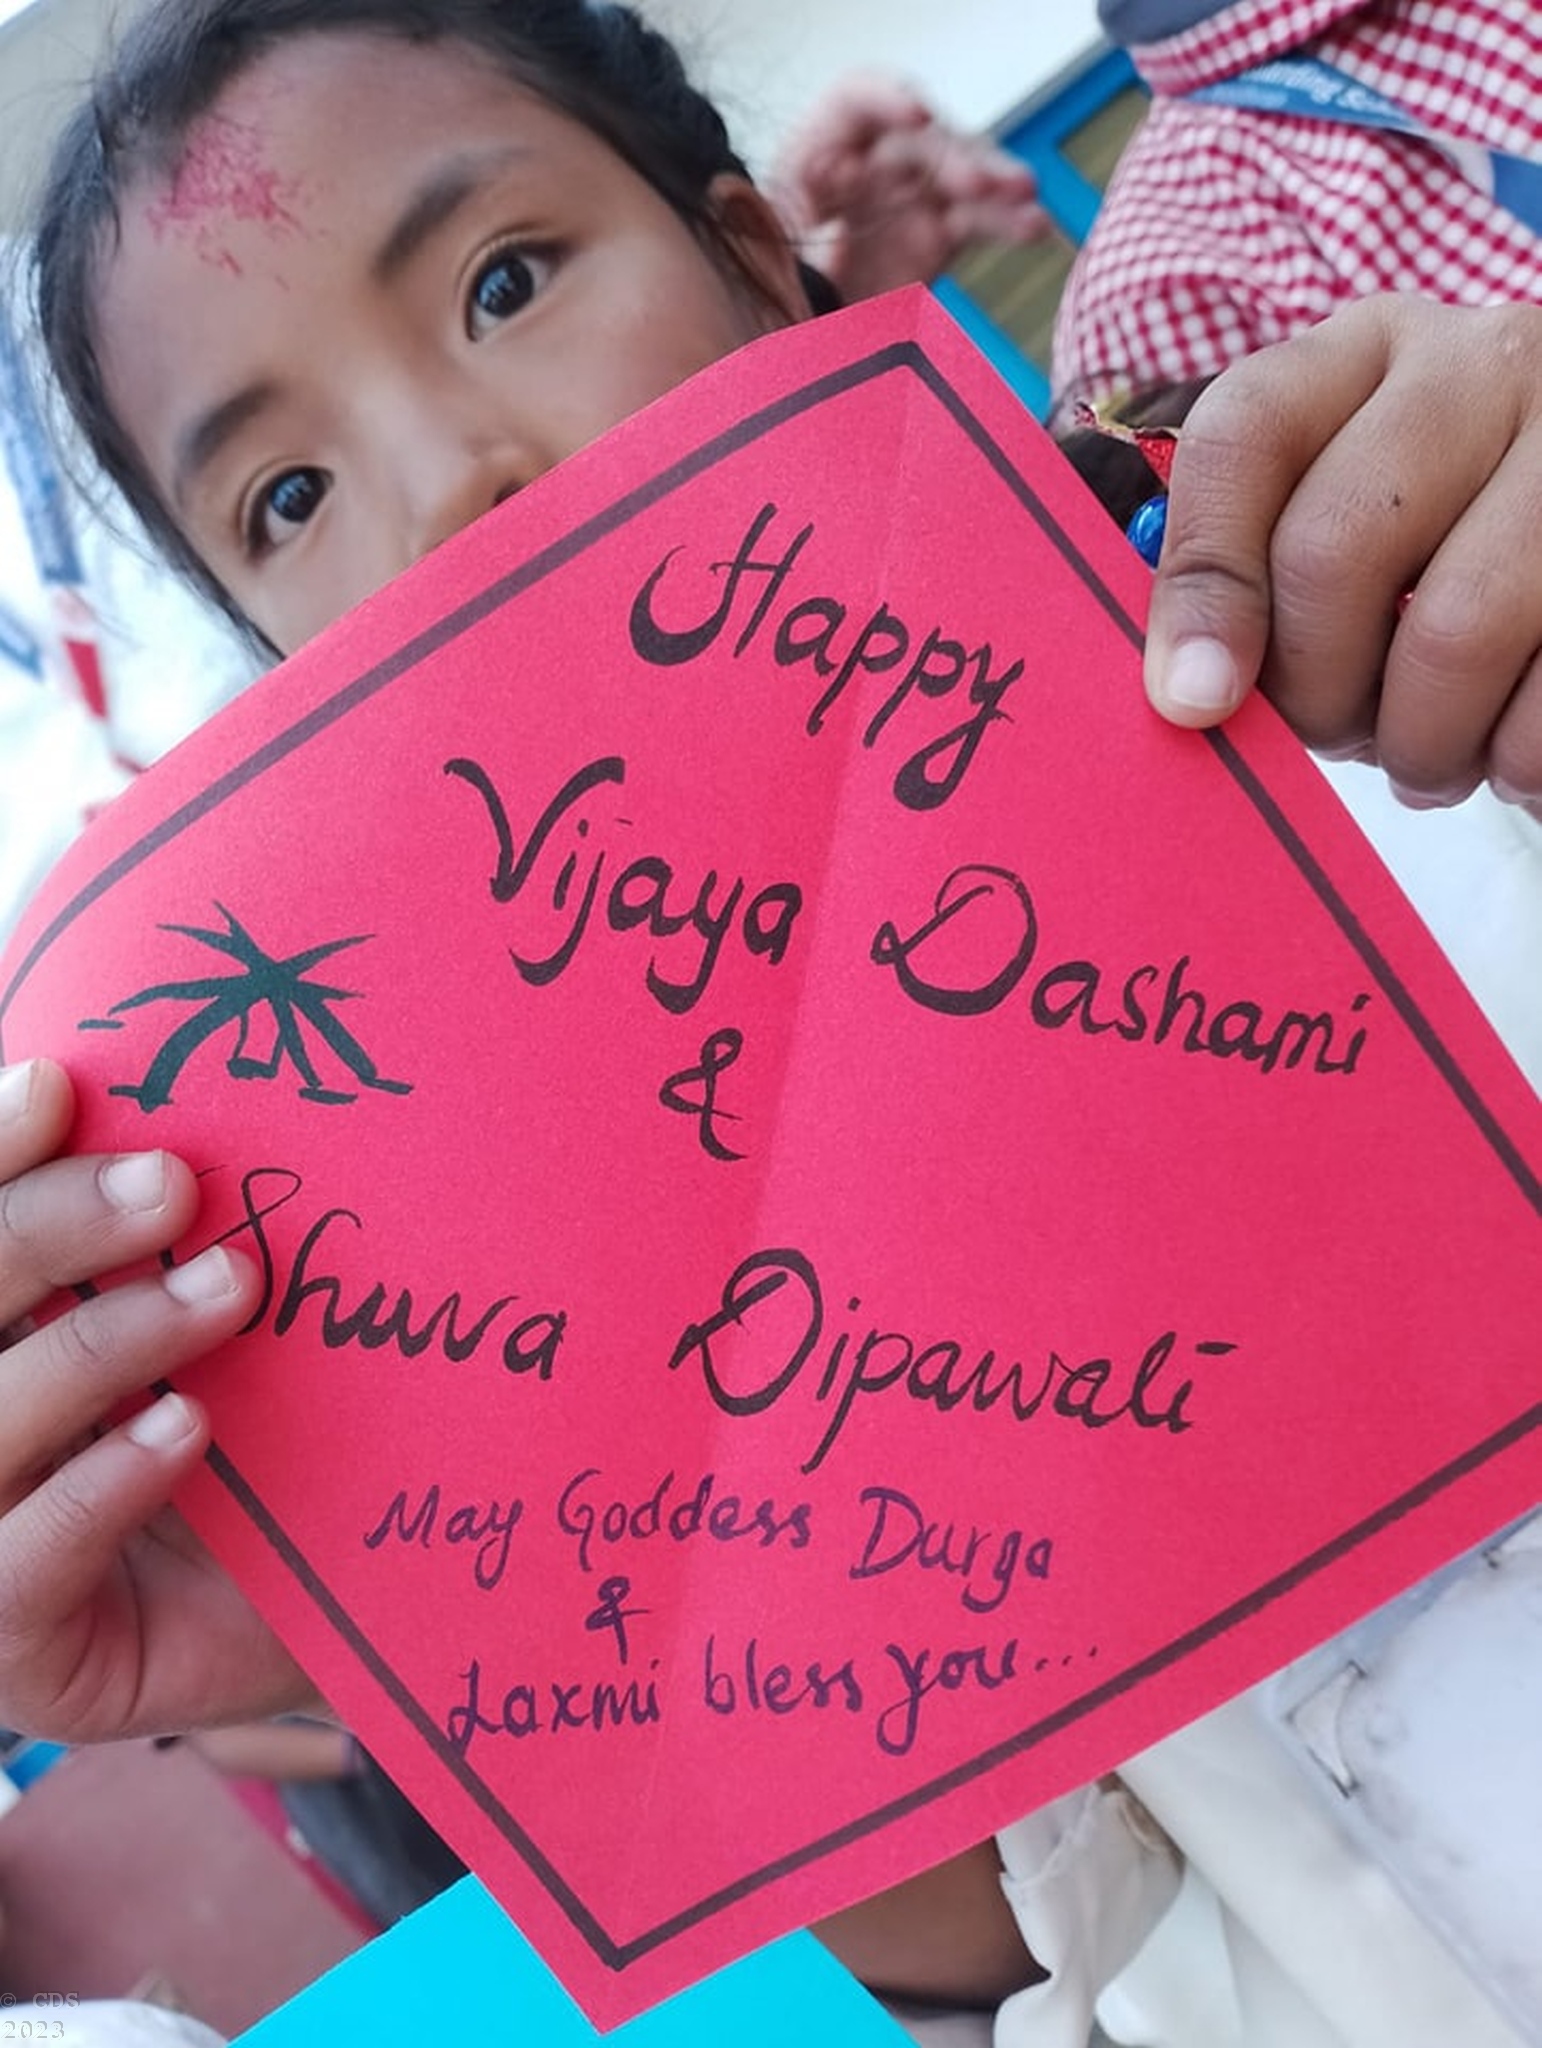 Happy
Vijaya Dashami
&
Shuva Dipawali
May Goddess Durga
&
Laxmi bless you...
© CDS
2023